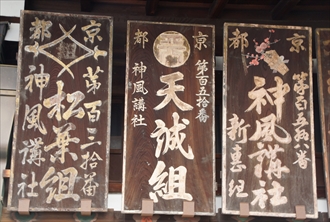 京都
第百二拾番
松葉組
神風講社
京都
第百五拾番
神風講社
天誠組
京都
第百五拾八番
神風講社
新恵組